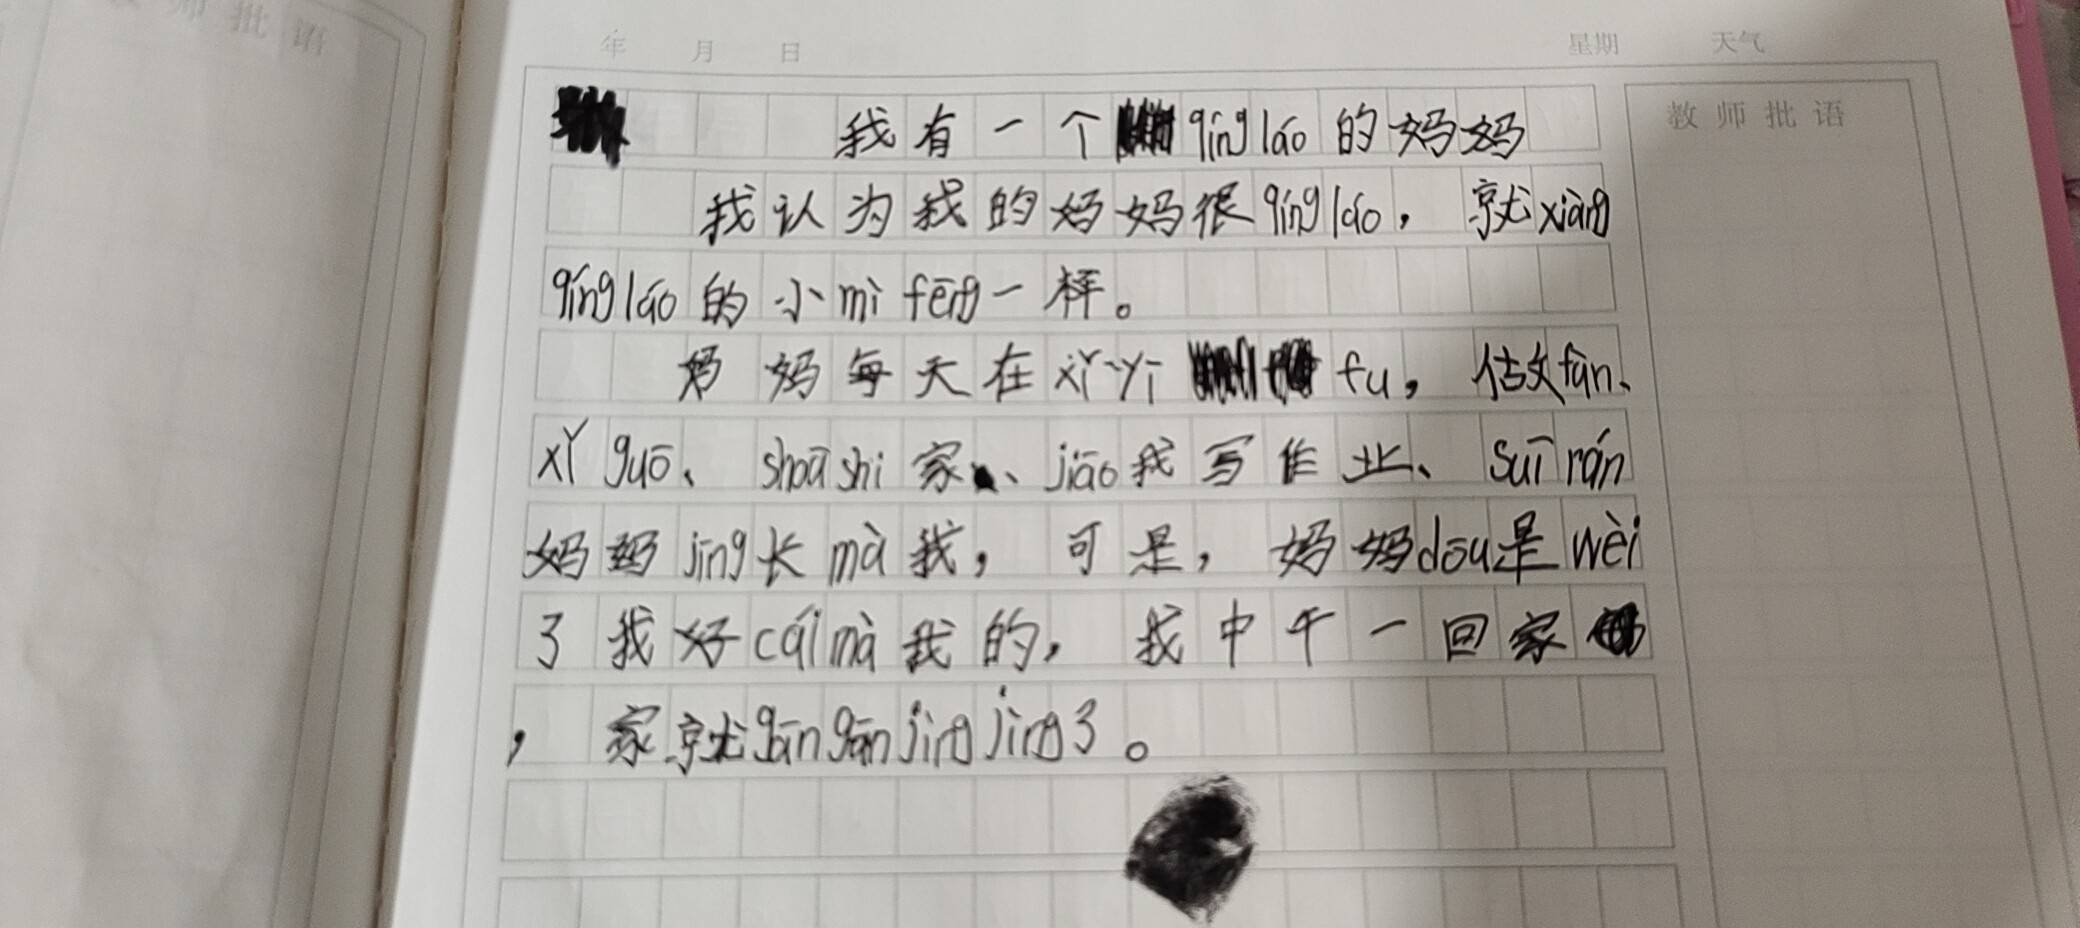 教师批语
年 月 日 星期 天气
教师批语
我有一个 qínɡ láo 的妈妈
我认为我的妈妈很qínɡ láo，就xiànɡ
qínɡ láo 的小mì fēnɡ一样。
妈妈每天在xǐ yī fu，估文fàn、
xǐ ɡuō、shoū shi 家、jiāo我写作业、suī rán
妈妈jīnɡ长mà我，可是，妈妈dōu是wèi
了我好cái mà我的，我中午一回家
，家就ɡān ɡān jìnɡ jìnɡ了。